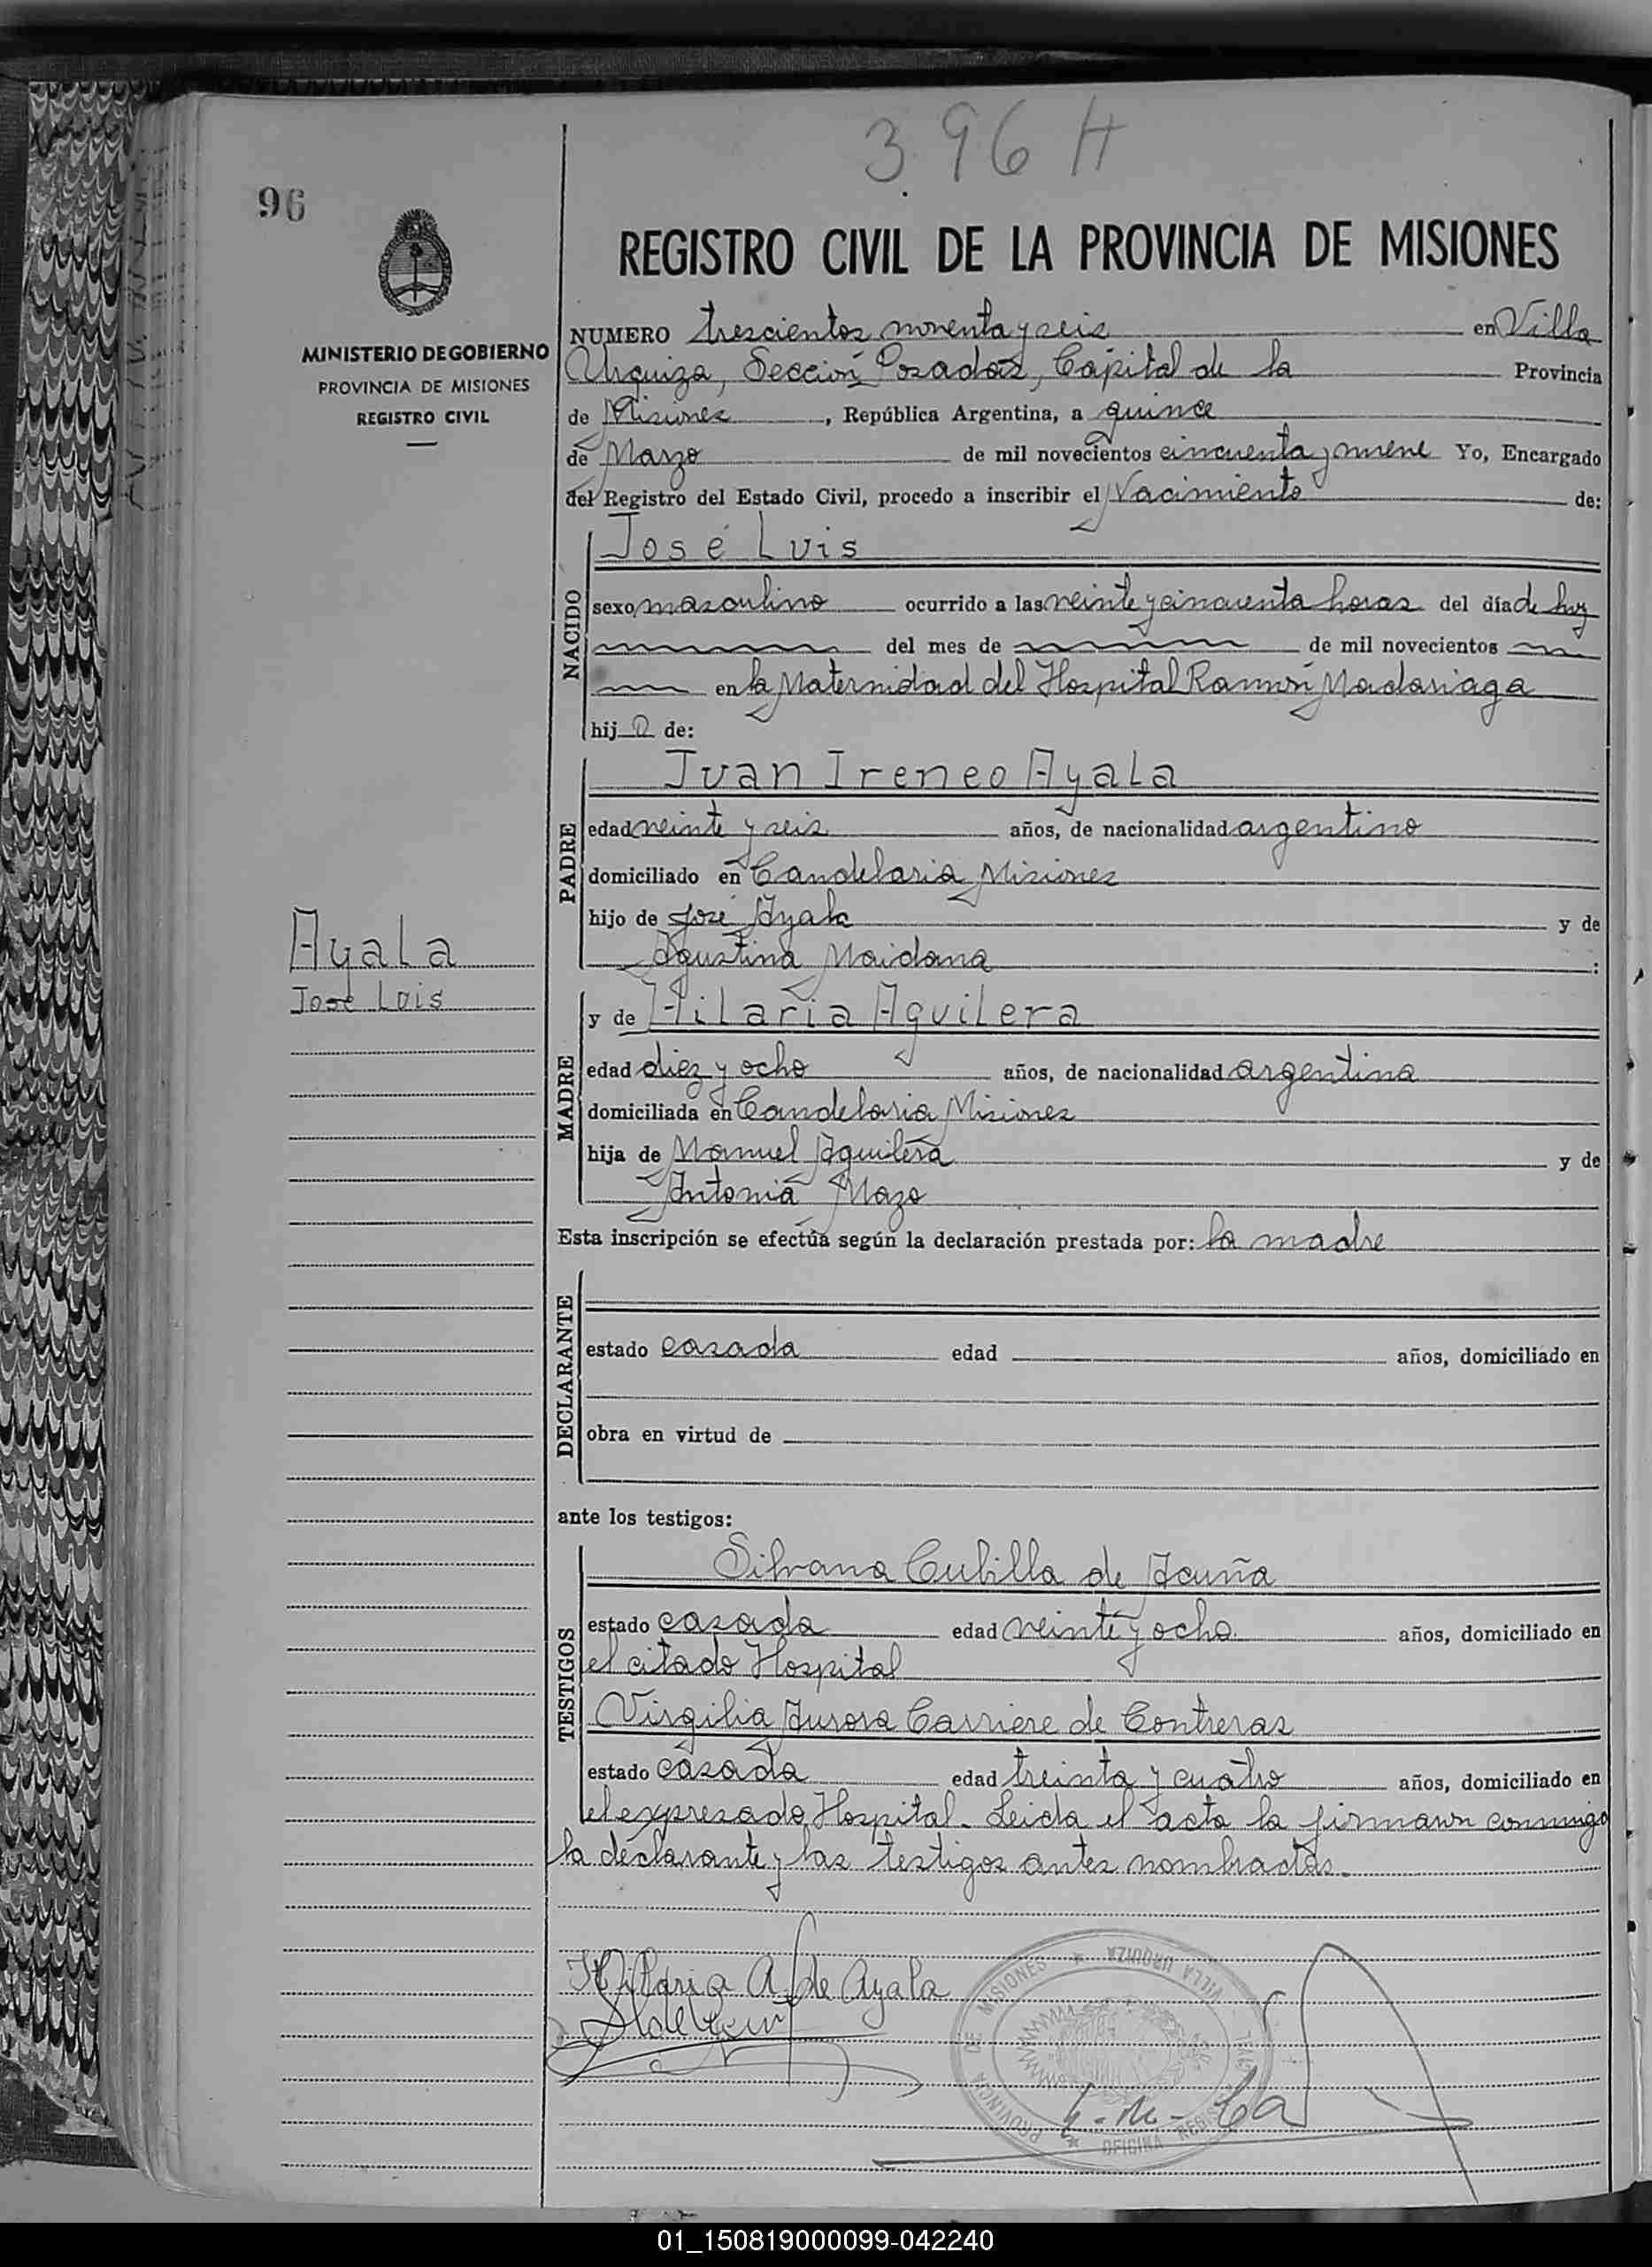 396 H
96
REGISTRO CIVIL DE LA PROVINCIA DE MISIONES
MINISTERIO DE GOBIERNO
PROVINCIA DE MISIONES
REGISTRO CIVIL
NUMERO trescientos noventa y seis en Villa
Urquiza, Sección Posadas, Capital de la Provincia
de Misiones, República Argentina, a quince
de Marzo de mil novecientos cincuenta y nueve Yo, Encargado
del Registro del Estado Civil, procedo a inscribir el Nacimiento de:
NACIDO
José Luis
sexo masculino ocurrido a las veinte y cincuenta horas del día de hoy
del mes de de mil novecientos
en la Maternidad del Hospital Ramón Madariaga
hijo de:
PADRE
Juan Ireneo Ayala
edad veinte y seis años, de nacionalidad argentino
domiciliado en Candelaria Misiones
hijo de José Ayala y de
Agustina Maidana :
Ayala
José Luis
MADRE
y de Hilaria Aguilera
edad diez y ocho años, de nacionalidad argentina
domiciliada en Candelaria Misiones
hija de Manuel Aguilera y de
Antonia Mazo
Esta inscripción se efectúa según la declaración prestada por: la madre
DECLARANTE
estado casada edad años, domiciliado en
obra en virtud de
ante los testigos:
TESTIGOS
Silvana Cubilla de Acuña
estado casada edad veinte y ocho años, domiciliado en
el citado Hospital
Virgilia Aurora Carriere de Contreras
estado casada edad treinta y cuatro años, domiciliado en
el expresado Hospital. Leida el acta la firmaron conmigo
la declarante y las testigos antes nombradas.
Hilaria A. de Ayala
PROVINCIA DE MISIONES * VILLA URQUIZA
* OFICINA
01_150819000099-042240